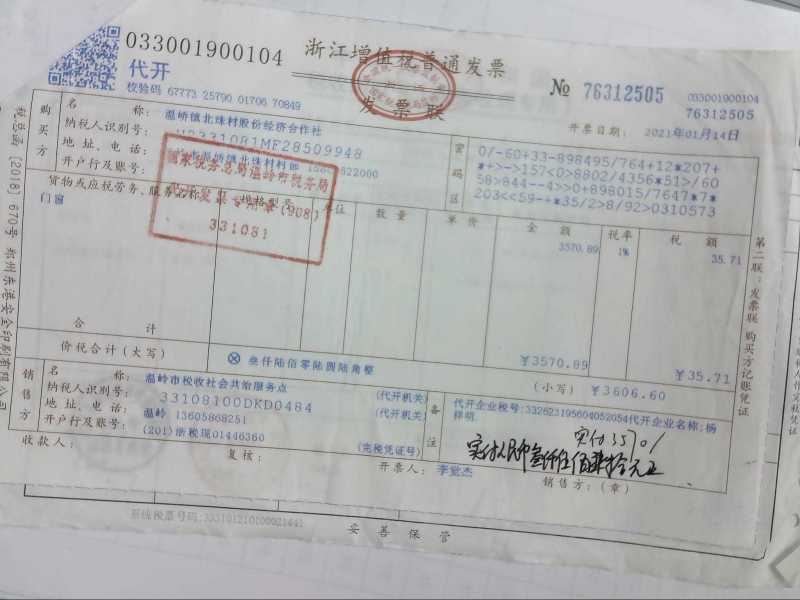 033001900104
浙江增值税普通发票
代开
发票联
校验码 67773 25790 01706 70849
№ 76312505
033001900104
76312505
开票日期： 2021年01月14日
税总函〔2018〕670号 郑州东港安全印刷有限公司
购买方
名称： 温峤镇北珠村股份经济合作社
纳税人识别号： 331081MF28509948
地址、电话：
温峤镇北珠村村部
开户行及账号：
密码区
0/-60+33-898495/764+12*207+
*+>-->157<0>8802/4356*51>/60
58>844--4>>0+898015/7647*7*
203<<59-+*35/2>8/92>0310573
国家税务总局温岭市税务局
发票专用章(908)
331081
货物或应税劳务、服务名称
规格型号
单位
数量
单价
金额
税率
税额
门窗
3570.89
1%
35.71
合计
¥3570.89
¥35.71
价税合计（大写）
叁仟陆佰零陆圆陆角整
（小写） ¥3606.60
第二联：发票联 购买方记账凭证
销售方
名称： 温岭市税收社会共治服务点
(代开机关)
纳税人识别号： 33108100DKD0484
(代开机关)
地址、电话： 温岭 13605868251
开户行及账号： (201)浙税现01446360
(完税凭证号)
备注
代开企业税号：332623195604052054代开企业名称：杨
祥明
实付3570/
实付人民币叁仟伍佰柒拾元正
收款人：
复核：
开票人： 李觉杰
销售方：（章）
妥善保管